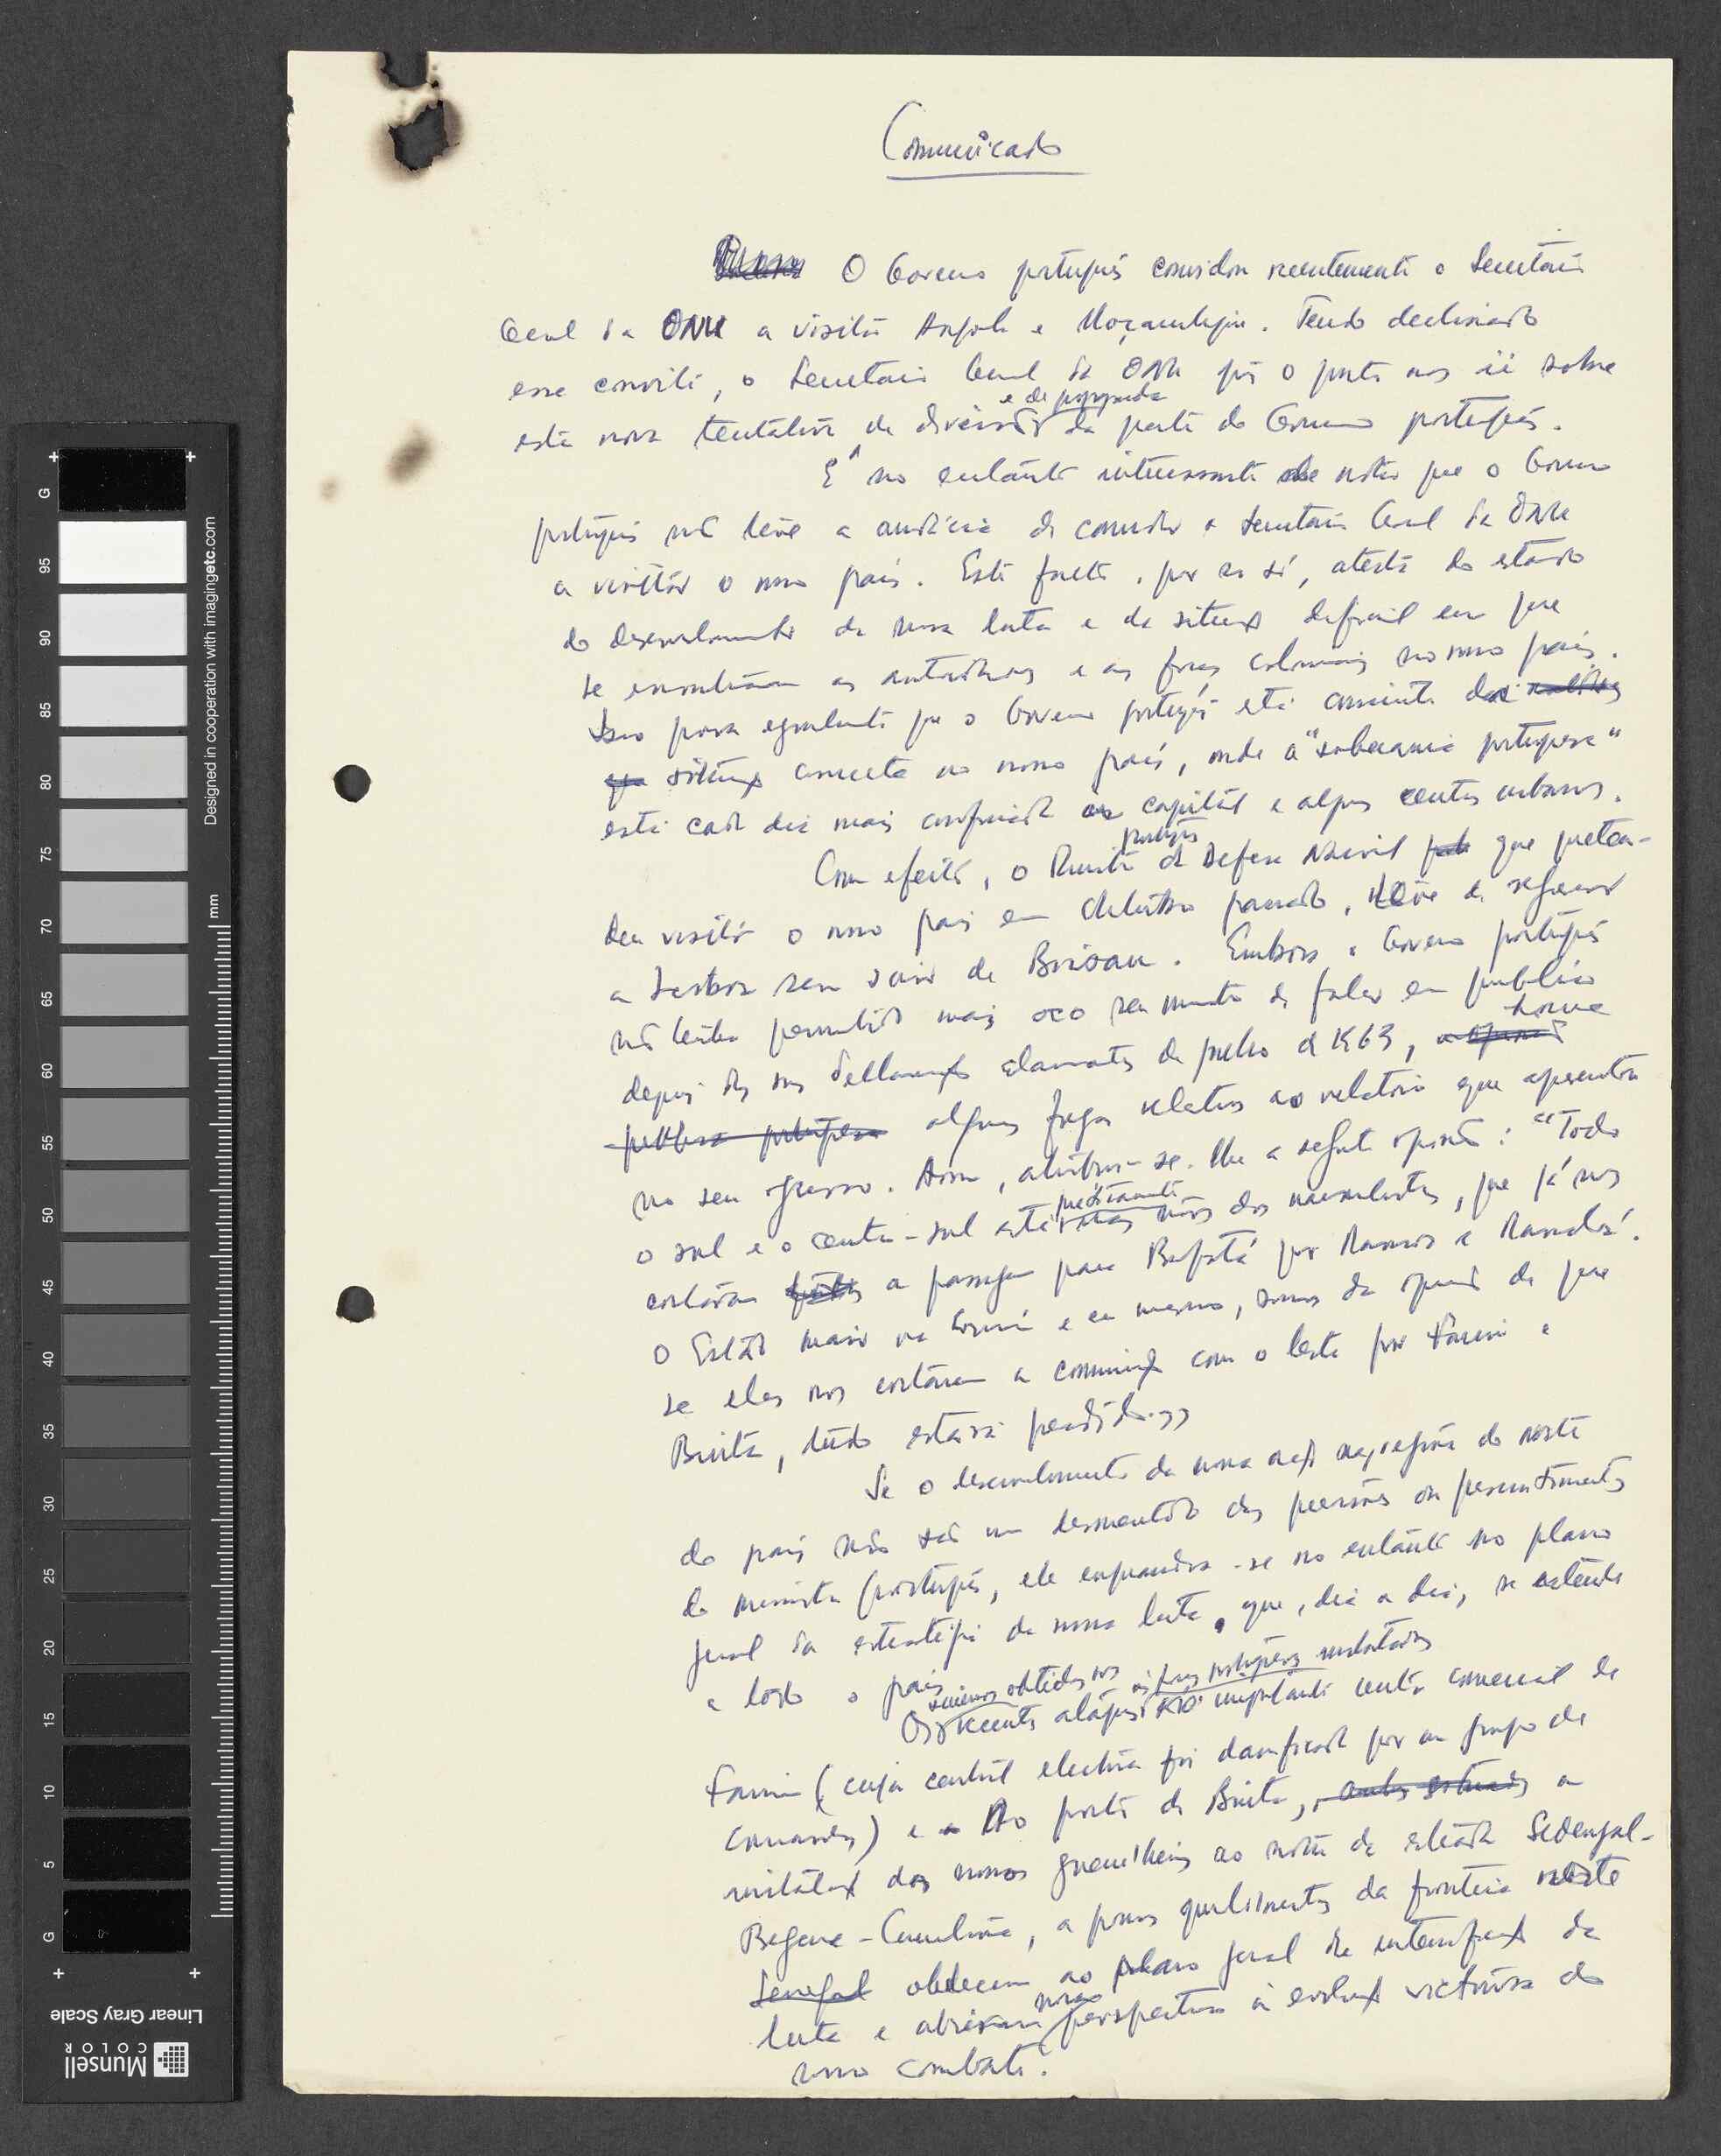 Comunicado
O Governo português convidou recentemente o Secretário
Geral da ONU a visitar Angola e Moçambique. Tendo declinado
esse convite, o Secretário Geral da ONU pôs o ponto nos ii sobre
e de propaganda
esta nova tentativa de diversão da parte do Governo português.
É no entanto interessante de notar que o Governo
português não teve a audácia de convidar o Secretário Geral da ONU
a visitar o nosso país. Este facto, por si só, atesta do estado
do desenvolvimento da nossa luta e da situação difícil em que
se encontram as autoridades e as forças coloniais no nosso país.
Isso prova igualmente que o Governo português está consciente da
situação concreta no nosso país, onde a "soberania portuguesa"
está cada dia mais confinada à capital e alguns centros urbanos.
português
Com efeito, o Ministro da Defesa Nacional que preten-
deu visitar o nosso país em passado, teve de regressar
a Lisboa sem sair de Bissau. Embora o Governo português
não tenha permitido mais ao seu ministro de falar em público
houve
depois das suas declarações alarmantes de julho de 1963,
algumas fugas relativas ao relatório que apresentou
no seu regresso. Assim, atribui-se-lhe a seguinte opinião: "Todo
praticamente
o sul e o centro-sul está nas mãos dos nacionalistas, que já nos
cortaram a passagem para Bafatá por Mansoa e Mansabá.
O Estado maior na Guiné e eu mesmo, somos da opinião de que
se eles nos cortarem a comunicação com o leste por Farim e
Binta, tudo estará perdido."
Se o desenvolvimento da nossa acção na região do norte
do país não é um desmentido das previsões ou pressentimentos
do ministro português, ele enquadra-se no entanto no plano
geral da estratégia da nossa luta, que, dia a dia, se estende
a todo o país.
sucessos obtidos nos às forças portuguesas instaladas
Os recentes ataques no importante centro comercial de
Farim (cuja central eléctrica foi danificada por um grupo de
comandos) e no porto de Binta, a
instalação dos nossos guerrilheiros ao norte da estrada Sedengal-
Begene-Cumbamor, a poucos quilómetros da fronteira norte
Senegal obedecem ao plano geral de intensificação da
novas
luta e abriram perspectivas à evolução victoriosa do
nosso combate.